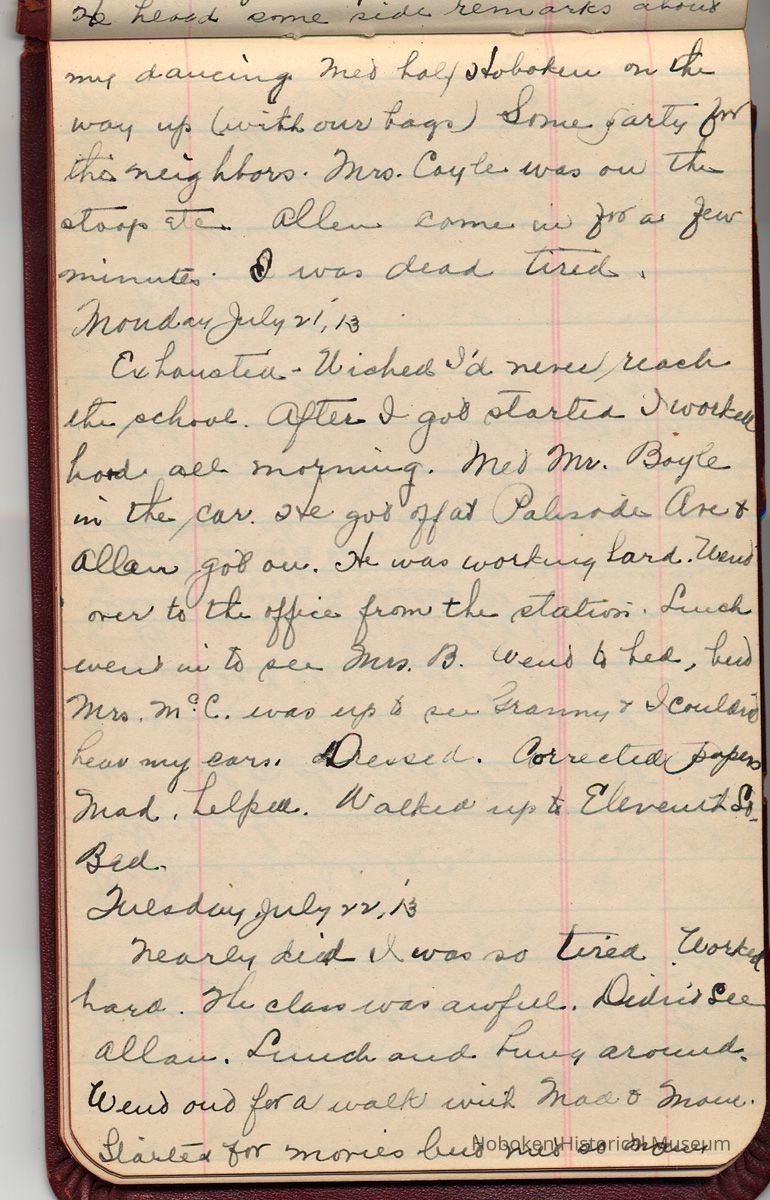 He heard some side remarks about
my dancing. Met half Hoboken on the
way up (with our bags) Some party for
the neighbors. Mrs. Coyle was on the
stoop etc. Allen come in for a few
minutes. I was dead tired.
Monday July 21, '13
Exhausted - Wished I'd never reach
the school. After I got started I worked
hard all morning. Met Mr. Boyle
in the car. He got off at Palisade Ave &
Allan got on. He was working hard. Went
over to the office from the station. Lunch
went in to see Mrs. B. Went to bed, but
Mrs. McC. was up to see Granny & I couldn't
hear my ears. Dressed. Corrected papers
Mad. helped. Walked up to Eleventh St.
Bed.
Tuesday July 22, '13
Nearly died I was so tired. Worked
hard. The class was awful. Didn't see
Allan. Lunch and hung around.
Went out for a walk with Mad & Mame.
Started for movies but met so many
Hoboken Historical Museum